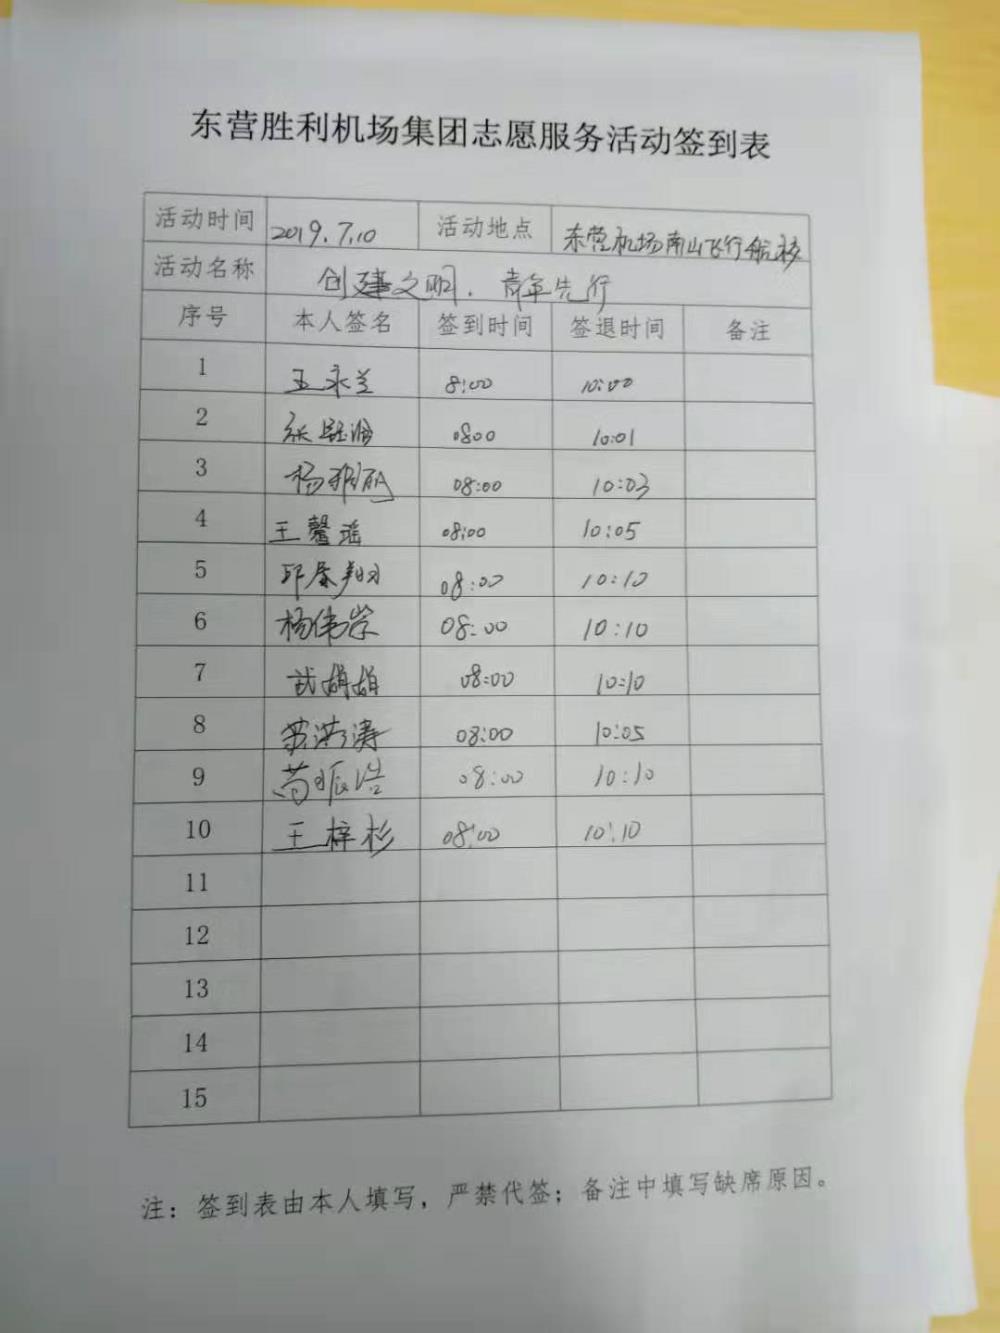 东营胜利机场集团志愿服务活动签到表
活动时间 2019.7.10 活动地点 东营机场南山飞行航校
活动名称 创建文明.青年先行
序号 本人签名 签到时间 签退时间 备注
1 王永兰 8:00 10:00
2 张 0800 10:01
3 杨雅丽 08:00 10:03
4 王馨瑶 08:00 10:05
5 翔 08:00 10:10
6 杨伟 08:00 10:10
7 武娟娟 08:00 10:10
8 洪涛 08:00 10:05
9 苟振浩 08:00 10:10
10 王梓杉 08:00 10:10
11
12
13
14
15
注：签到表由本人填写，严禁代签；备注中填写缺席原因。